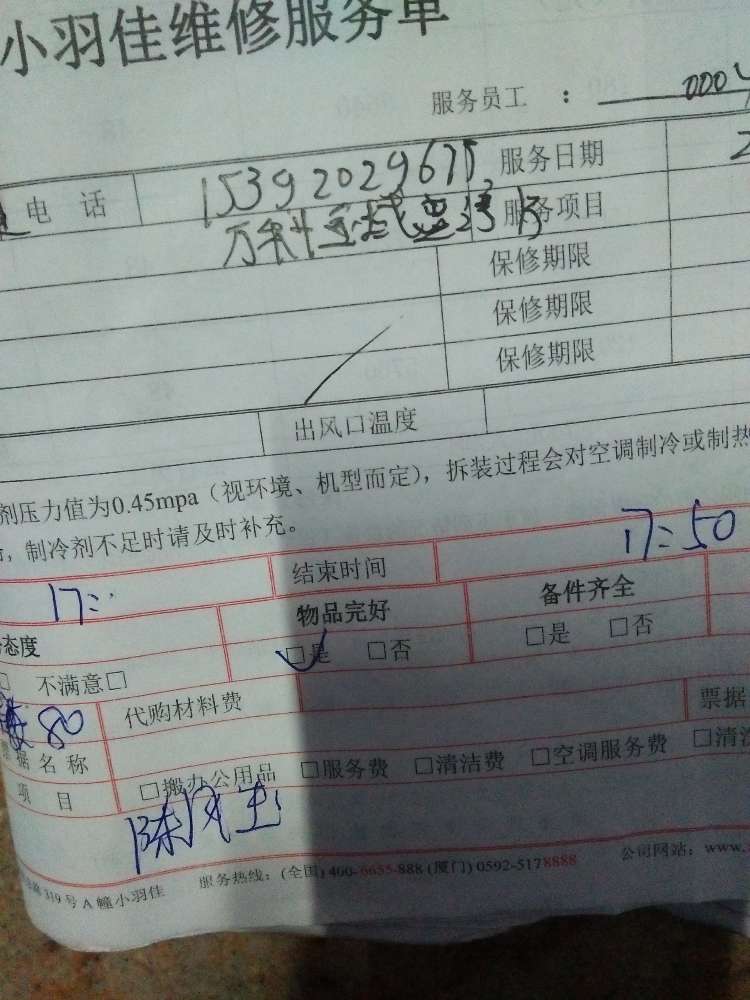 小羽佳维修服务单
服务员工 : 0004
电 话 服务日期
服务项目
保修期限
保修期限
保修期限
出风口温度
剂压力值为0.45mpa（视环境、机型而定），拆装过程会对空调制冷或制热
，制冷剂不足时请及时补充。
17: 结束时间 17:50
态度 物品完好 备件齐全
不满意□ □是 □否 □是 □否
80 代购材料费 票据
票据名称
项 目 □搬办公用品 □服务费 □清洁费 □空调服务费 □清洁
319 号 A 幢小羽佳 服务热线：(全国) 400-6655-888 (厦门) 0592-5178888 公司网站：www.